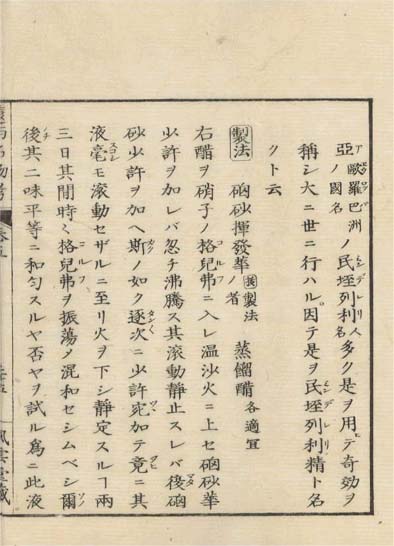 亞ノ國名歐羅巴洲ノ民垤列利人名多ク是ヲ用テ奇効ヲ
稱シ大ニ世ニ行ハル因テ是ヲ民垤列利精ト名
クト云
製法 硇砂揮發華製法ノ者 蒸餾醋各適宜
右醋ヲ硝子ノ格兒弗ニ入レ温沙火ニ上セ硇砂華
少許ヲ加レバ忽チ沸騰ス其滾動静止スレバ後硇
砂少許ヲ加ヘ斯ノ如ク逐次ニ少許宛加テ竟ニ其
液毫モ滾動セザルニ至リ火ヲ下シ静定スルヿ兩
三日其間時々格兒弗ヲ振蕩メ混和セシムベシ爾
後其二味平等ニ和匀スルヤ否ヤヲ試ル爲ニ此液